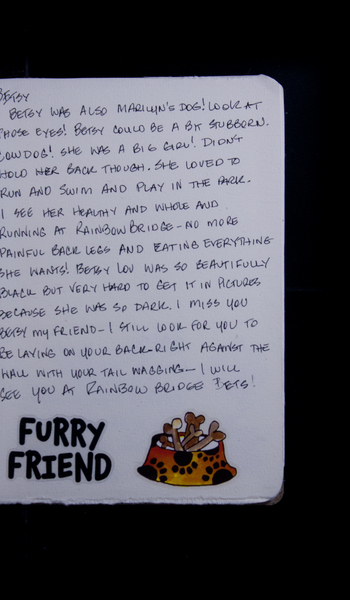 BETSY
BETSY WAS ALSO MARILYN'S DOG! LOOK AT
THOSE EYES! BETSY COULD BE A BIT STUBBORN.
COWDOG! SHE WAS A BIG GIRL! DIDN'T
HOLD HER BACK THOUGH. SHE LOVED TO
RUN AND SWIM AND PLAY IN THE PARK.
I SEE HER HEALTHY AND WHOLE AND
RUNNING AT RAINBOW BRIDGE - NO MORE
PAINFUL BACK LEGS AND EATING EVERYTHING
SHE WANTS! BETSY LOU WAS SO BEAUTIFULLY
BLACK BUT VERY HARD TO GET IT IN PICTURES
BECAUSE SHE WAS SO DARK. I MISS YOU
BETSY MY FRIEND - I STILL LOOK FOR YOU TO
BE LAYING ON YOUR BACK RIGHT AGAINST THE
WALL WITH YOUR TAIL WAGGING - I WILL
SEE YOU AT RAINBOW BRIDGE BETS!
FURRY
FRIEND